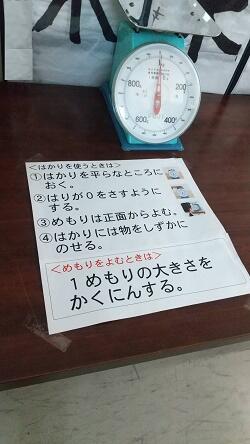 0
200
400
600
800
＜はかりを使うときは＞
①はかりを平らなところに
おく。
②はりが０をさすように
する。
③めもりは正面からよむ。
④はかりには物をしずかに
のせる。
＜めもりをよむときは＞
１めもりの大きさを
かくにんする。